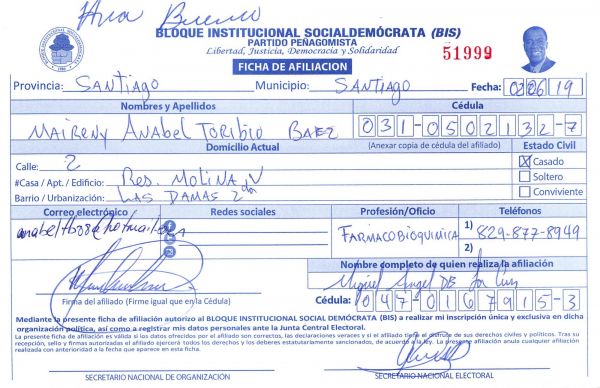 Ana Bueno
BLOQUE INSTITUCIONAL SOCIALDEMÓCRATA (BIS)
PARTIDO PEÑAGOMISTA
Libertad, Justicia, Democracia y Solidaridad
51999
FICHA DE AFILIACION
Provincia: SANTIAGO Municipio: SANTIAGO Fecha: 02 06 19
Nombres y Apellidos Cédula
MAIRENY ANABEL TORIBIO BAEZ 031-0502132-7
Domicilio Actual (Anexar copia de cédula del afiliado) Estado Civil
Calle: 2 X Casado
#Casa / Apt. / Edificio: Res. MOLINA IV Soltero
Barrio / Urbanización: LAS DAMAS 2da Conviviente
Correo electrónico Redes sociales Profesión/Oficio Teléfonos
FARMACOBIOQUIMICA 1) 829-877-8949
2)
Nombre completo de quien realiza la afiliación
Miguel Angel De
Firma del afiliado (Firme igual que en la Cédula) Cédula: 047-0167915-3
Mediante la presente ficha de afiliación autorizo al BLOQUE INSTITUCIONAL SOCIALDEMÓCRATA (BIS) a realizar mi inscripción única y exclusiva en dicha
organización política, así como a registrar mis datos personales ante la Junta Central Electoral.
La presente ficha de afiliación es válida si los datos ofrecidos por el afiliado son correctos, las declaraciones veraces y si el afiliado tiene el disfrute de sus derechos civiles y políticos. Tras su
recepción, sello y firmas autorizadas el afiliado ejercerá todos los derechos y los deberes estatutariamente sancionados, de acuerdo a la ley. La presente afiliación anula cualquier afiliación
realizada con anterioridad a la fecha que aparece en esta ficha.
SECRETARIO NACIONAL DE ORGANIZACIÓN SECRETARIO NACIONAL ELECTORAL